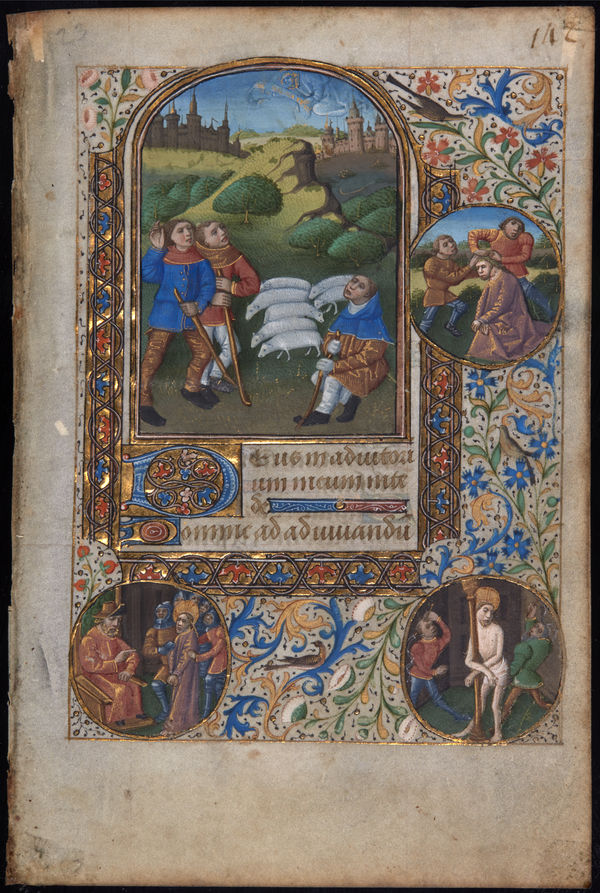 Deus in adiutori
um meum inte
de
Domine ad adiuuandū